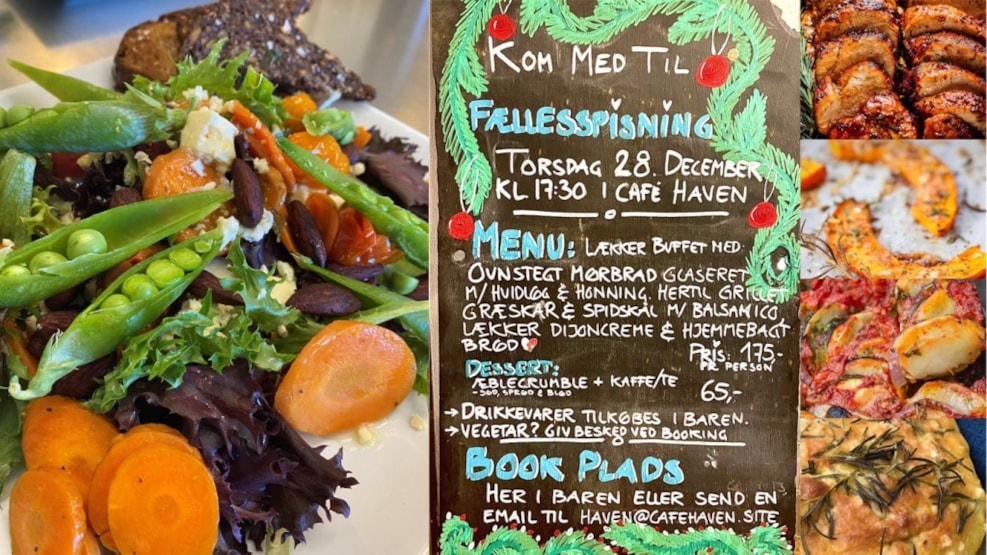 KOM MED TIL
FÆLLESSPISNING
TORSDAG 28. DECEMBER
KL 17:30 I CAFÉ HAVEN
MENU: LÆKKER BUFFET MED:
OVNSTEGT MØRBRAD GLASERET
M/ HVIDLØG & HONNING. HERTIL GRILLET
GRÆSKAR & SPIDSKÅL M/ BALSAMICO,
LÆKKER DIJONCREME & HJEMMEBAGT
BRØD
PRIS: 175,-
PR. PERSON
DESSERT:
ÆBLECRUMBLE + KAFFE/TE 65,-
- SØD, SPRØD & BLØD
→ DRIKKEVARER TILKØBES I BAREN.
→ VEGETAR? GIV BESKED VED BOOKING
BOOK PLADS
HER I BAREN ELLER SEND EN
EMAIL TIL HAVEN@CAFEHAVEN.SITE